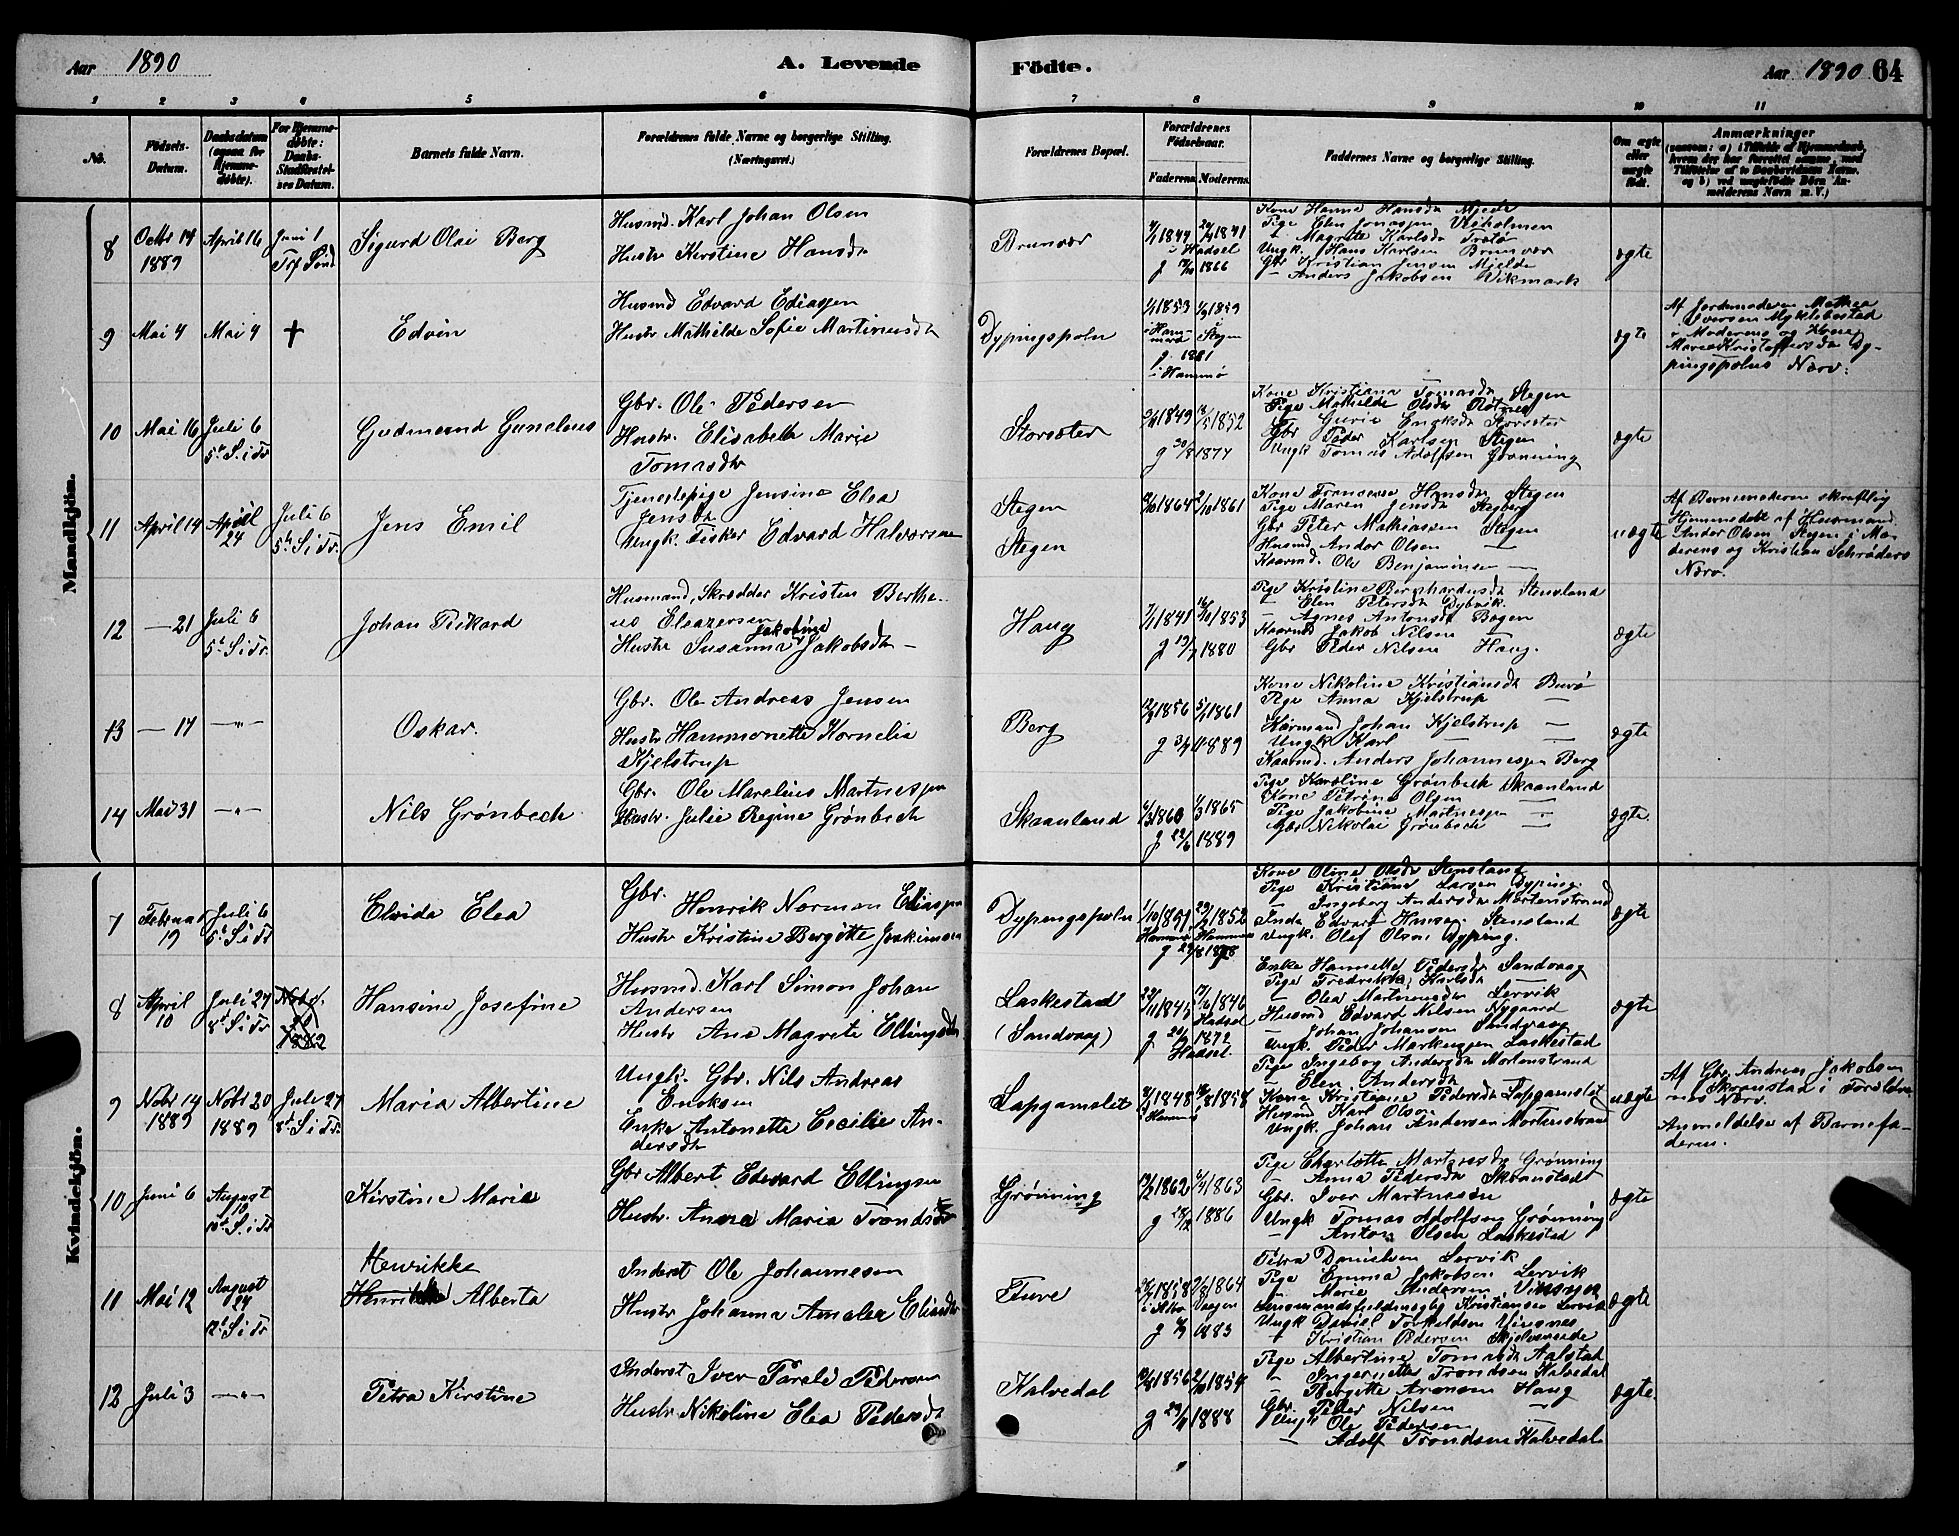 Aar 1890
A. Levende Födte.
Aar 1890 64
1 2 3 4 5 6 7 8 9 10 11
No.
Födsels-
Datum.
Daabsdatum
(ogsaa for
Hjemme-
döbte).
For Hjemme-
döbte:
Daabs-
Stadfæstel-
ses Datum.
Barnets fulde Navn.
Forældrenes fulde Navne og borgerlige Stilling.
(Næringsvei.)
Forældrenes Bopæl.
Forældrenes
Födselsaar.
Faderens. Moderens.
Faddernes Navne og borgerlige Stilling.
Om ægte
eller
uægte
födt.
Anmærkninger
Mandkjön.
8
Octbr 14
1889
April 16
Juni 1
Sigurd Olai Berg
Husmd. Karl Johan Olsen
Hustr Kirstine Hansdtr
Brunvær
1849
1841
i Hadsel
1866
Kone Hanna Hansdtr Mjelde
Magrete Karlsdtr
Ungk. Hans Karlsen Brunvær
Gbr Kristian Jensen Mjelde
Anders Jakobsen Vikmark
ægte
9
Mai 4
Mai 4
†
Edvin
Husmd Edvard Ediassen
Hustr Mathilde Sofie Martinusdtr
Dypingspoln
1853 1859
i Ham-
merø
i Stegen
g. 1881
i Hammerø
ægte
Af Jordmoderen Mathea
Iversen Myklebostad
i Moderens og Kone
Maren Kristoffersdtr Dy-
pingspolns Nærv.
10
Mai 16
Juli 6
5te S. i Tr.
Gudmund Gunelius
Gbr. Ole Pedersen
Hustr. Elisabeth Marie
Tomasdtr
Storsæter
1849 1852
g 20/8 1877
Kone Kristiana Tomasdtr Stegen
Pige Mathilde Olsdtr
Gbr Peder Karlsen Stegen
Ungk Tomas Adolfsen Grønning
ægte
11
April 14
April
24
Juli 6
5te S i Tr.
Jens Emil
Tjenestepige Jensine Elea
Jensdtr
Ungk. Fisker Edvard Halvorsen
Stegen
Stegen
1864 1861
Kone Fransena Hansdtr Stegen
Pige Maren Jensdtr Stegberg
Gbr Peter Mathiassen Stegen
Husmd Andor Olsen —
Kaarmd. Ole Benjaminsen —
uægte
Af Barnemoderen skriftlig
Hjemmedøbt af Husmand
Andor Olsen Stegen i Mo-
derens og Kristian Schrøders
Nærv.
12
— 21
Juli 6
5te S i Tr.
Johan Rikard
Husmand, Skrædder Kristen Berthe-
us Eleazersen
Jakobine
Hustr Susanna Jakobsdtr —
Haug
1841 1853
g 1880
Pige Kristine Bernhardusdtr Stensland
— Elen Petersdtr Dybvik
— Agnes Antonsdtr Bogen
Kaarmd Jakob Nilsen
Gbr Peder Nilsen Haug.
ægte
13
— 17
— " —
Oskar.
Gbr. Ole Andreas Jensen
Hustr Hammonette Kornelia
Kjelstrup
Berg
1856 1861
g 1889
Kone Nikoline Kristiansdtr Burø
Pige Anna Kjelstrup —
Kårmand Johan Kjelstrup —
Ungk Karl — —
Kaarmd. Anders Johannessen Berg
ægte
14
Mai 31
— " —
Nils Grønbech
Gbr. Ole Marelius Martnessen
Hustr. Julie Regine Grønbech
Skaanland
1860 1865
g 22/6 1889
Pige Karoline Grønbech Skaanland
Kone Petrine Olsen —
Pige Jakobine Martnessen —
Gbr Nikolai Grønbech —
ægte.
Kvindekjön.
7
Februar
19
Juli 6
5te S i Tr
Elvida Elea
Gbr.
Henrik Norman Eliassen
Hustr Kristine Bergitte Joakimsen
Dypingspoln
1851 1852
Kone Olina Olsdtr Stensland
Pige Kristiane Larsen Dyping.
— Ingeborg Andersdtr Mortenstrand
Inds Edvard Hansen Stensland
Ungk. Olaf Olsen Dyping.
ægte
8
April
10
Juli 27
8de S i Tr
Hansine Josefine
Husmd. Karl Simon Johan
Andersen
Hustr Ane Magrete Ellingsdtr
Laskestad
(Sandvaag)
1845 1846
Hadsel
g 1872
Hadsel.
Enke Hannette Pedersdtr Sandvaag
Pige Fredrikke Karlsdtr
— Olea Martinusdtr Lervik
Husmd Edvard Nilsen Nygaard
— Johan Johansen Sandvaag
Ungk. Peder Markussen Laskestad
ægte
9
Nobr 14
1889
Nobr 20
1889
Juli 27
8de S i Tr.
Maria Albertine
Ungk. Gbr. Nils Andreas
Eriksen
Enke Antonette Cecilie An-
dersdtr
Lapgamslet
1848 1858
Pige Ingeborg Andersdtr Mortenstrand
— Elen Andersdtr
Kone Kristiane Pedersdtr Lapgamslet
Husmd Karl Olsen
Ungk. Johan Andersen Mortenstrand
uægte
Af Gbr. Andreas Jakobsen
Skranstad i Foreldre-
nes Nærv.
Anmeldelse af Barnefa-
deren.
10
Juni 6
August
10
10de S i Tr
Kirstine Maria
Gbr Albert Edevard Ellingsen
Hustr. Anna Maria Trondsdtr
Grønning
1862 1863
g 28/12 1886
Pige Charlotte Martnesdtr Grønning
— Anna Pedersdtr Skranstad
Gbr. Iver Martnessen
Ungk Tomas Adolfsen Grønning
— Anton Olsen Laskestad
ægte
11
Mai 12
August
24
12te S i Tr
Henrikke
Henrikke Alberta
Inderst Ole Johannesen
Hustr Johanna Amalea Eliasdtr
Fure
1858 1864
Vaagen
g 1883
Petra Danielsen Lervik
Pige Emma Jakobsen Lervik
— Marie Andersen Vinsnes
Ungk Daniel Torkeldsen Vinsnes
— Kristian Pedersen
ægte
12
Juli 3
— " —
Petra Kirstine
Inderst Iver Pareli Pedersen
Hustr Nikoline Elea Pedersdtr
Kalvedal
1856 1854
g 1888
Pige Albertine Tomasdtr Aalstad
— Ingeranette Trondsen Kalvedal
— Bergitte Aronsen Haug
Gbr. Peder Nilsen —
Ungk Ole Pedersen
— Adolf Trondsen Kalvedal
ægte.